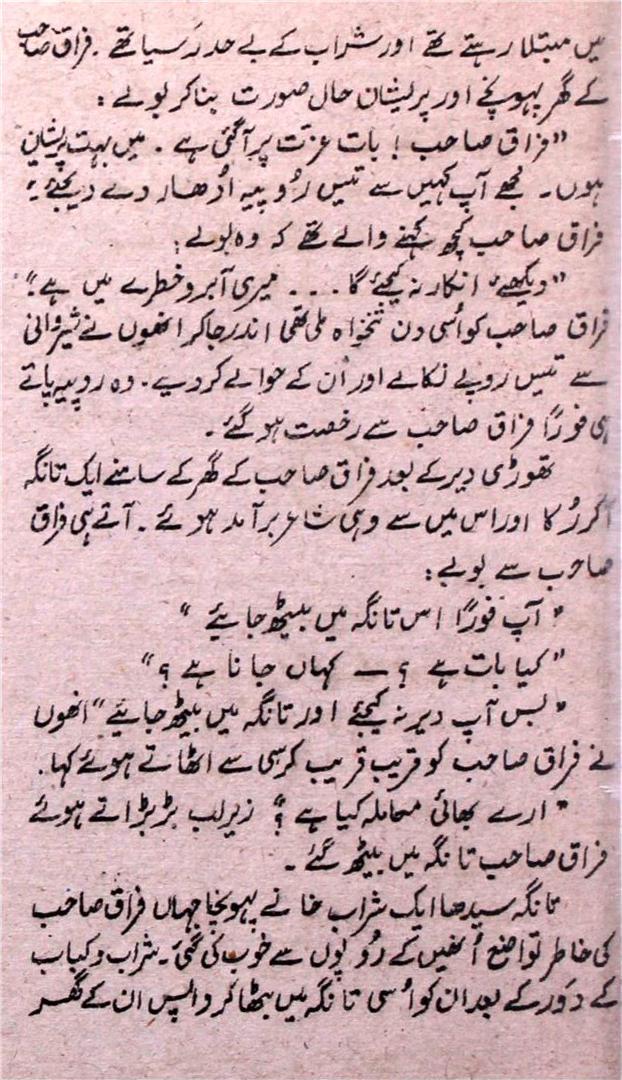 میں مبتلا رہتے تھے اور شراب کے بے حد رَسیا تھے ۔ فراق صاحب
کے گھر پہونچے اور پریشان حال صورت بنا کر بولے :
"فراق صاحب ! بات عزّت پر آگئی ہے ۔ میں بہت پریشان
ہوں ۔ مجھے آپ کہیں سے تیس رُوپیہ اُدھار دے دیجئے"
فراق صاحب کچھ کہنے والے تھے کہ وہ بولے :
"دیکھیے انکار نہ کیجئے گا ... میری آبرو خطرے میں ہے"
فراق صاحب کو اُسی دن تنخواہ ملی تھی اندر جاکر انھوں نے شیروانی
سے تیس روپے نکالے اور اُن کے حوالے کر دیے ۔ وہ روپیہ پاتے
ہی فورًا فراق صاحب سے رخصت ہو گئے ۔
تھوڑی دیر کے بعد فراق صاحب کے گھر کے سامنے ایک تانگہ
آکر رُکا اور اس میں سے وہی شاعر برآمد ہوئے ۔ آتے ہی فراق
صاحب سے بولے :
"آپ فورًا اس تانگہ میں بیٹھ جائیے"
"کیا بات ہے ؟ ــ کہاں جانا ہے ؟"
"بس آپ دیر نہ کیجئے اور تانگہ میں بیٹھ جائیے" انھوں
نے فراق صاحب کو قریب قریب کرسی سے اٹھاتے ہوئے کہا.
"ارے بھائی معاملہ کیا ہے ؟" زیرلب بڑبڑاتے ہوئے
فراق صاحب تانگہ میں بیٹھ گئے ۔
تانگہ سیدھا ایک شراب خانے پہونچا جہاں فراق صاحب
کی خاطر تواضع اُنھیں کے رُوپوں سے خوب کی گئی ۔ شراب و کباب
کے دَور کے بعد ان کو اُسی تانگہ میں بٹھا کر واپس ان کے گھر